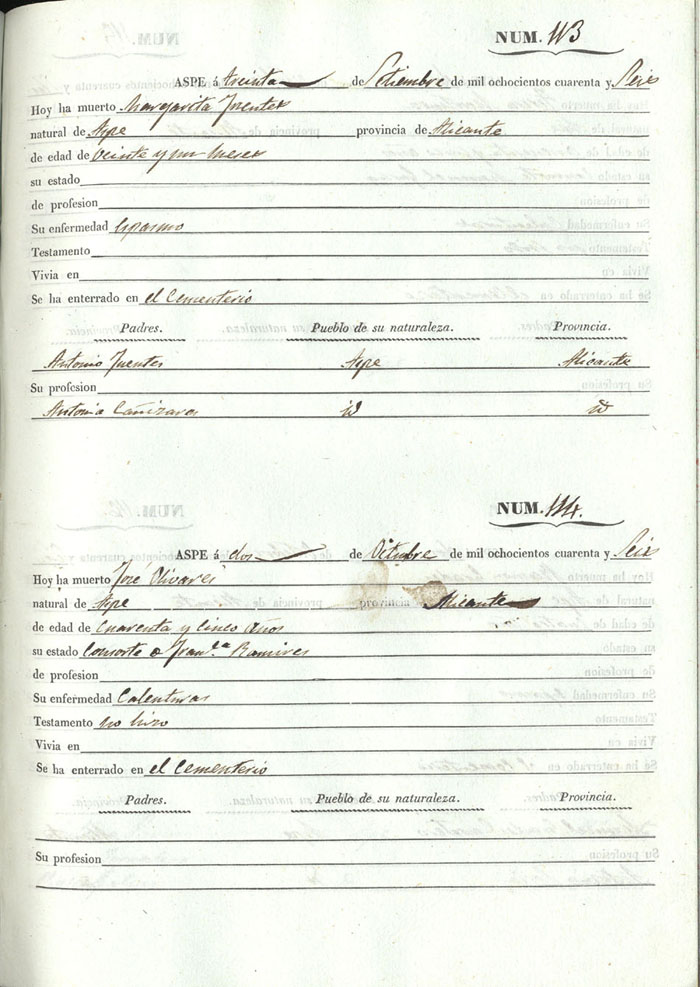 NUM. 113
ASPE á treinta de Setiembre de mil ochocientos cuarenta y Seis
Hoy ha muerto Margarita Fuentes
natural de Aspe provincia de Alicante
de edad de veinte y un meses
su estado
de profesion
Su enfermedad Espasmo
Testamento
Vivia en
Se ha enterrado en el Cementerio
Padres. Pueblo de su naturaleza. Provincia.
Antonio Fuentes Aspe Alicante
Su profesion
Antonia Cañizares id id
NUM. 114.
ASPE á dos de Octubre de mil ochocientos cuarenta y Seis
Hoy ha muerto José Olivares
natural de Aspe provincia Alicante
de edad de Cuarenta y Cinco años
su estado Consorte de Franca Ramires
de profesion
Su enfermedad Calenturas
Testamento no hizo
Vivia en
Se ha enterrado en el Cementerio
Padres. Pueblo de su naturaleza. Provincia.
Su profesion